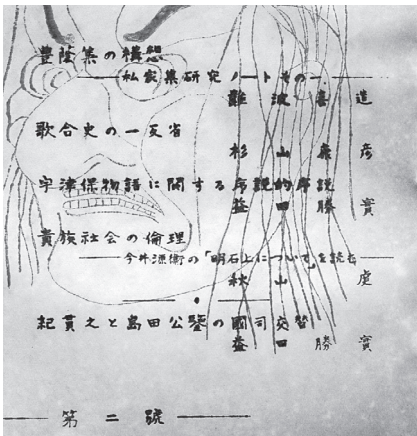 豊蔭集の構想
――私家集研究ノートその一――
難波喜造
歌合史の一反省
杉山康彦
宇津保物語に関する序説的序説
益田勝實
貴族社会の倫理
――今井源衛の「明石上について」を読む――
秋山虔
紀貫之と島田公鑒の國司交替
益田勝實
――第二號――